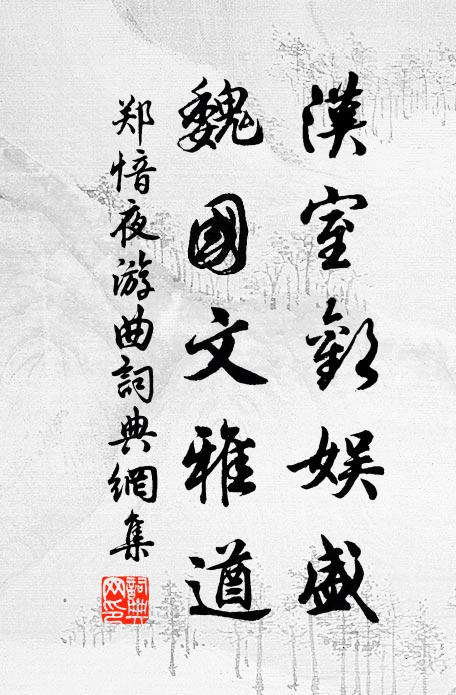 漢室歡娱盛
魏國文雅遒
郑愔夜游曲詞典網集
詞典网印